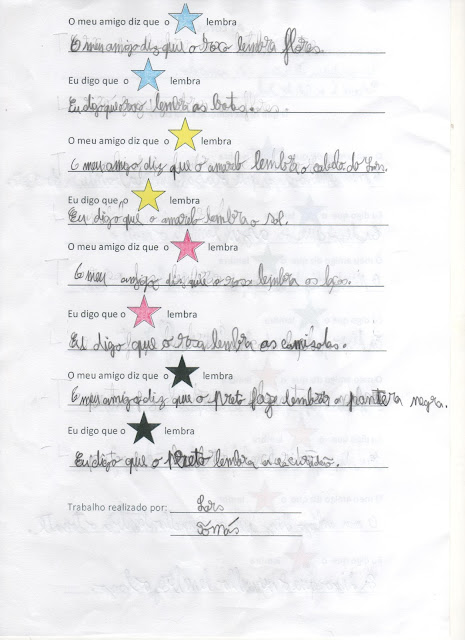 O meu amigo diz que o lembra
O meu amigo diz que o roxo lembra flores.
Eu digo que o lembra
Eu digo que o roxo lembra as botas.
O meu amigo diz que o lembra
O meu amigo diz que o amarelo lembra o cabelo do
Eu digo que o lembra
Eu digo que o amarelo lembra o sol.
O meu amigo diz que o lembra
O meu amigo diz que o rosa lembra os laços.
Eu digo que o lembra
Eu digo que o rosa lembra as camisolas.
O meu amigo diz que o lembra
O meu amigo diz que o preto faz lembrar a pantera negra.
Eu digo que o lembra
Eu digo que o preto lembra a escuridão.
Trabalho realizado por: Lars
Tomás